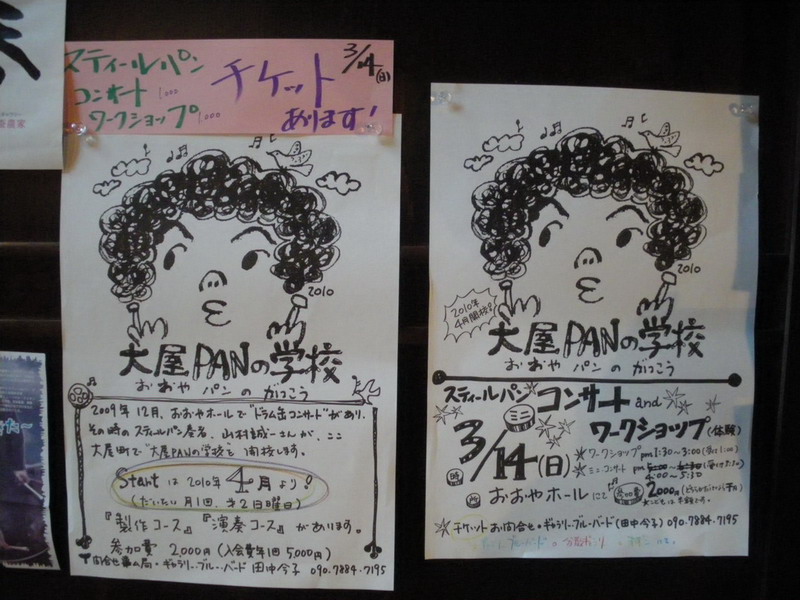 スティールパン
コンサート 1,000
ワークショップ 1,000
チケット
あります!
3/14(日)
2010
大屋PANの学校
おおや パン の がっこう
2009年 12月、おおやホールで"ドラム缶コンサート"があり、
その時のスティールパン奏者、山村誠一さんが、ここ
大屋町で"大屋PANの学校を開校します。
Start は 2010年 4月より!
(だいたい 月1回、第2日曜日)
『製作コース』『演奏コース』があります。
参加費 2,000円 (入会費年1回 5,000円)
問合せ 事ム局・ギャラリーブルーバード 田中今子 090.7884.7195
2010
2010年
4月開校!!
大屋PANの学校
おおや パン の がっこう
スティールパン ミニ コンサート and
ワークショップ (体験)
3/14(日)
ワークショップ pm 1:30〜3:00 (受付1:00)
ミニコンサート pm
4:00〜5:30
時
所 おおやホールにて
参加費 2,000円
チケットお問合せ・ギャラリーブルーバード (田中今子) 090.7884.7195